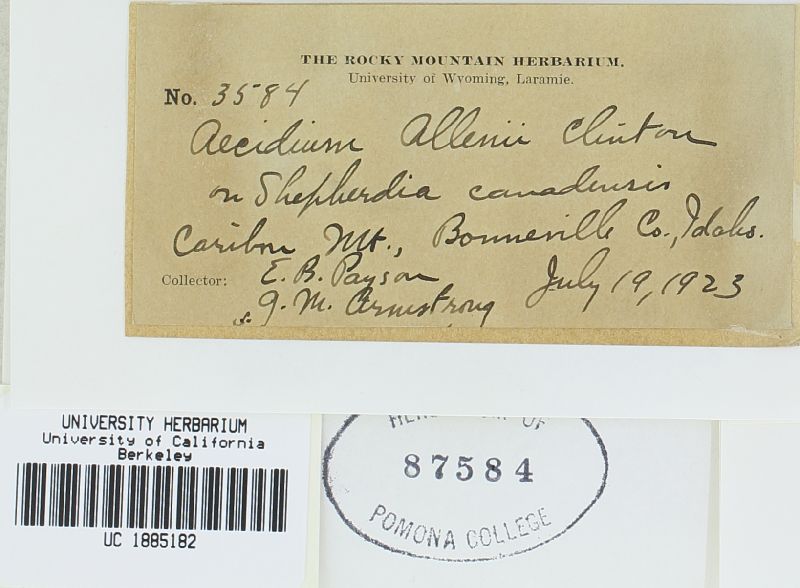 THE ROCKY MOUNTAIN HERBARIUM.
University of Wyoming, Laramie.
No. 3584
Aecidium Allenii Clinton
on Shepherdia canadensis
Caribou Mt., Bonneville Co., Idaho.
Collector: E. B. Payson July 19, 1923
& G. M. Armstrong
UNIVERSITY HERBARIUM
University of California
Berkeley
UC 1885182
OF
87584
POMONA COLLEGE